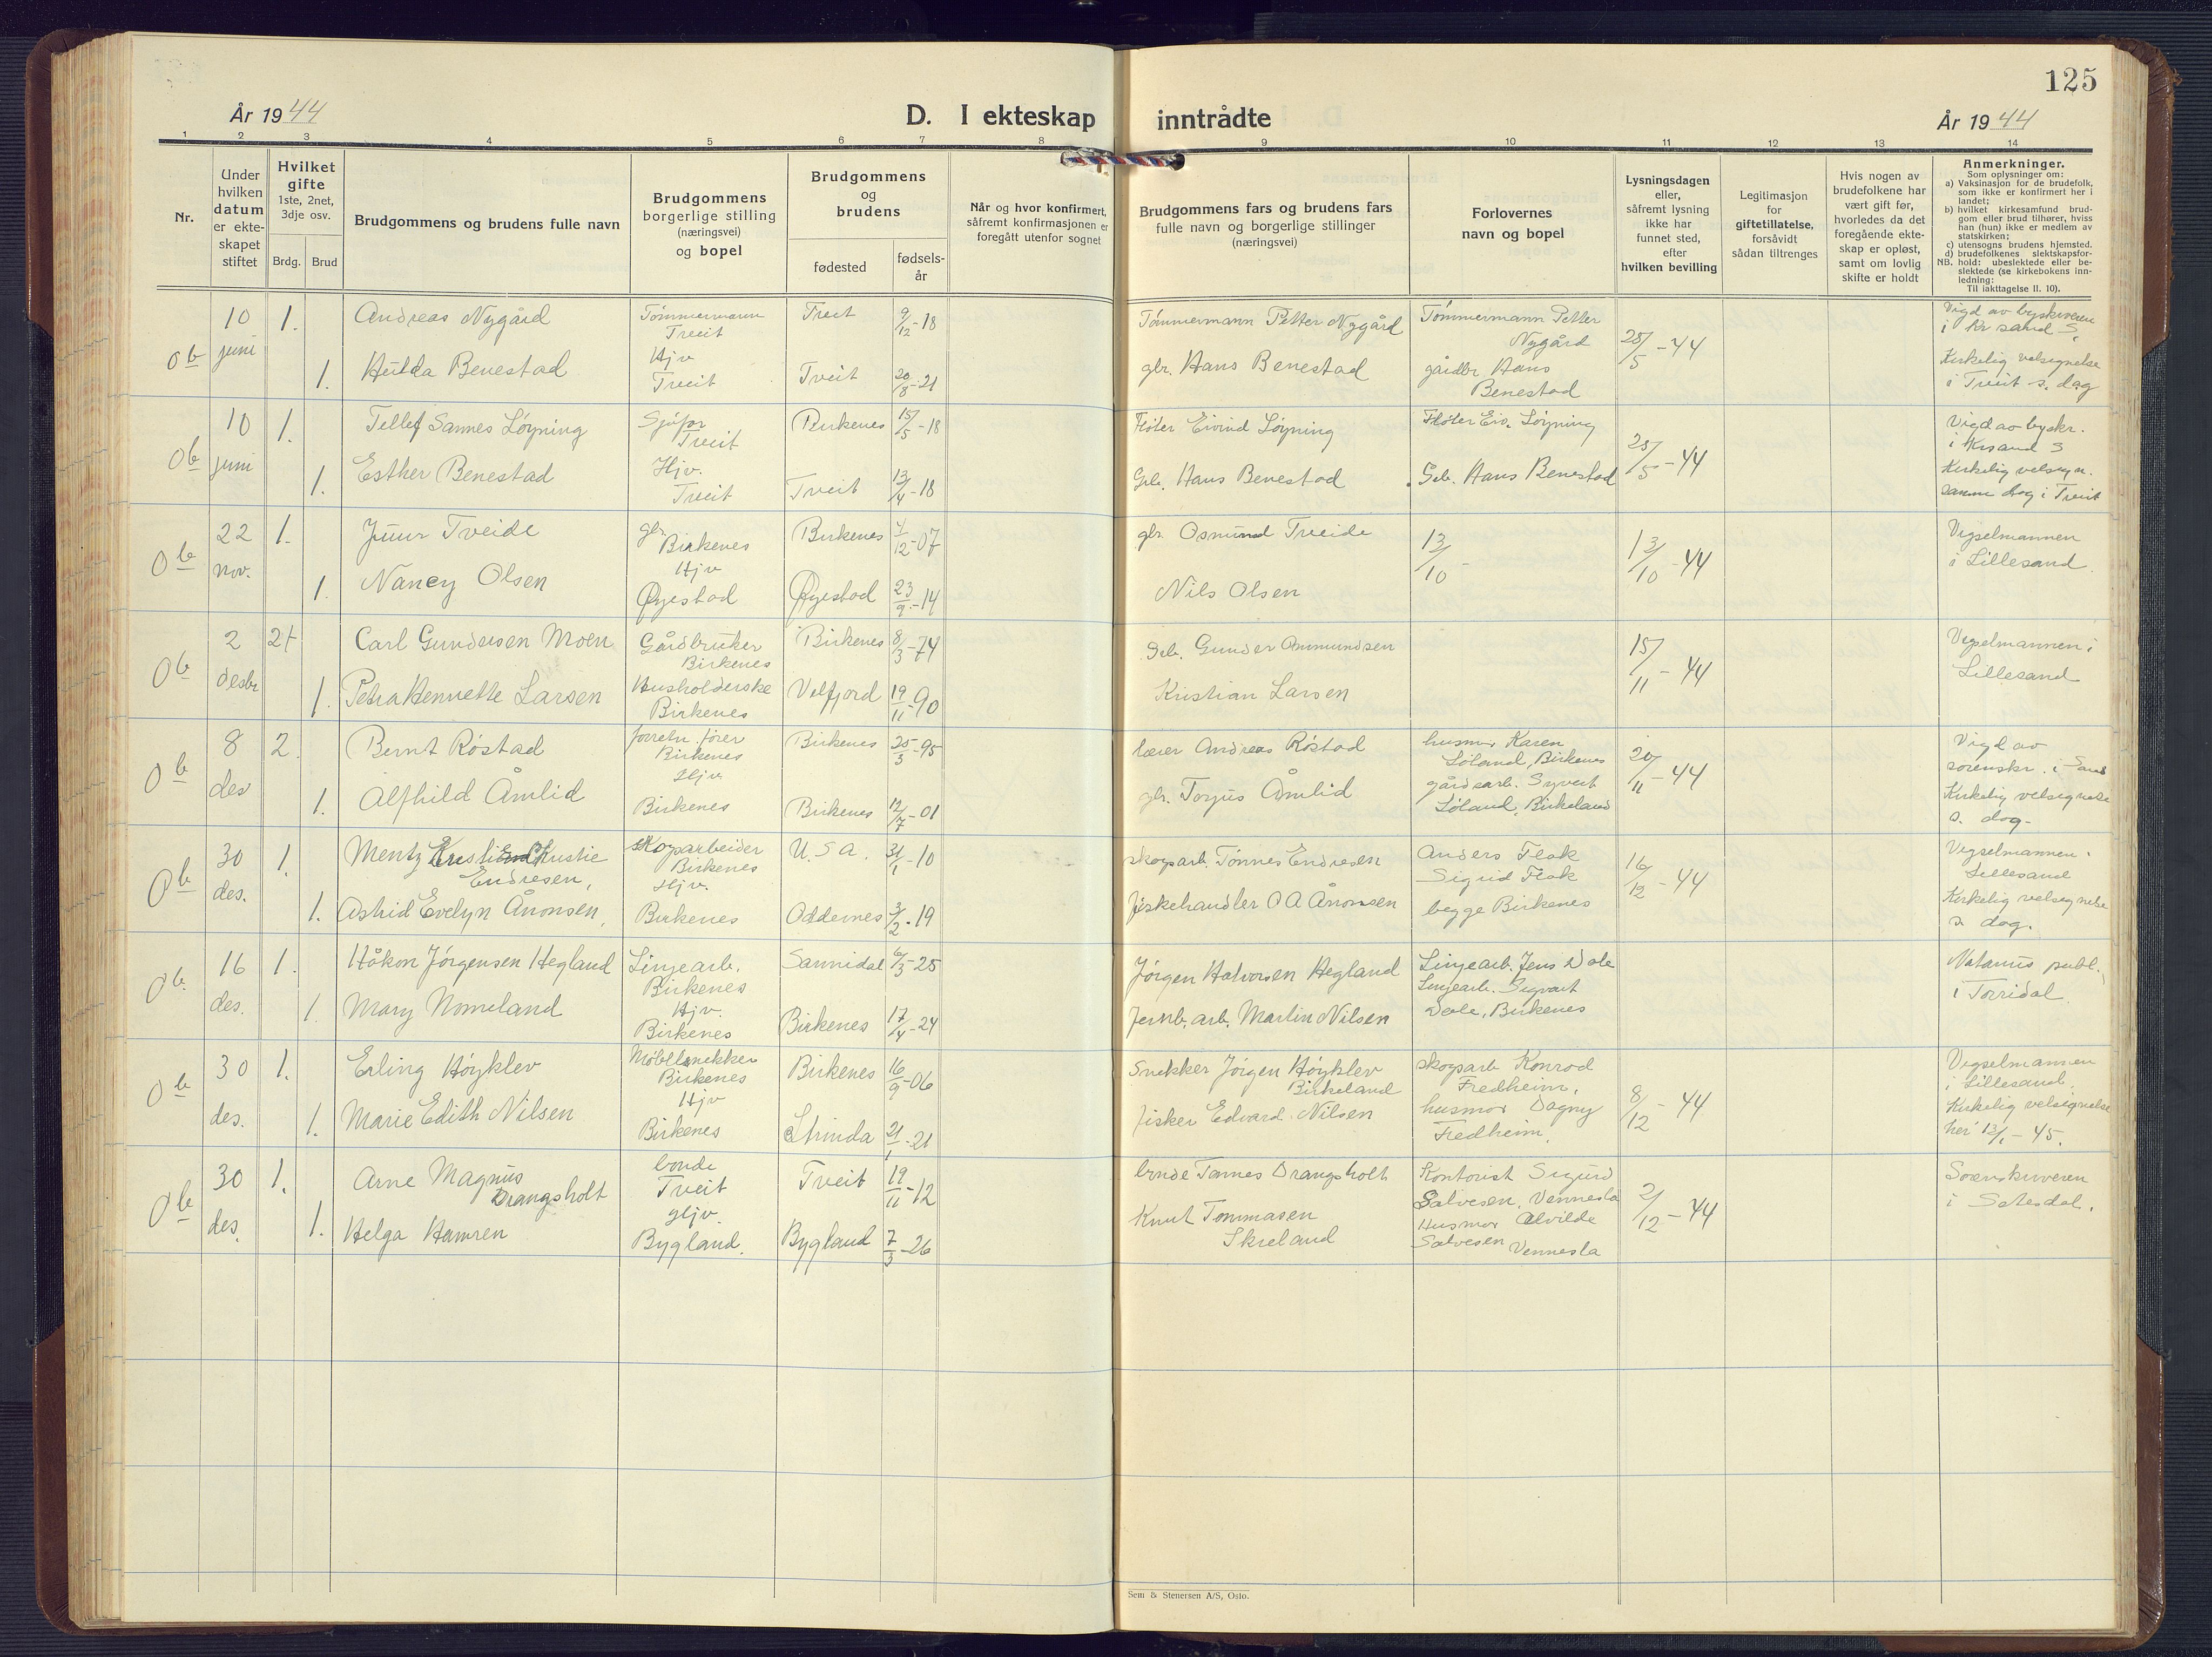 125
År 1944
D. I ekteskap inntrådte
År 1944
1 2 3 4 5 6 7 8 9 10 11 12 13 14
Nr.
Under
hvilken
datum
er ekte-
skapet
stiftet
Hvilket
gifte
1ste, 2net,
3dje osv.
Brdg.
Brud
Brudgommens og brudens fulle navn
Brudgommens
borgerlige stilling
(næringsvei)
og bopel
Brudgommens
og
brudens
fødested
fødsels-
år
Når og hvor konfirmert,
såfremt konfirmasjonen er
foregått utenfor sognet
Brudgommens fars og brudens fars
fulle navn og borgerlige stillinger
(næringsvei)
Forlovernes
navn og bopel
Lysningsdagen
eller,
såfremt lysning
ikke har
funnet sted,
efter
hvilken bevilling
Legitimasjon
for
giftetillatelse,
forsåvidt
sådan tiltrenges
Hvis nogen av
brudefolkene har
vært gift før,
hvorledes da det
foregående ekte-
skap er opløst,
samt om lovlig
skifte er holdt
Anmerkninger.
Som oplysninger om:
a) Vaksinasjon for de brudefolk,
som ikke er konfirmert her i
landet;
b) hvilket kirkesamfund brud-
gom eller brud tilhører, hviss
han (hun) ikke er medlem av
statskirken;
c) utensogns brudens hjemsted.
d) brudefolkenes slektskapsfor-
NB. hold: ubeslektede eller be-
slektede (se kirkebokens inn-
ledning:
Til iakttagelse II. 10).
Ob
10
juni
1.
1.
Andreas Nygård
Hulda Benestad
Tømmermann
Tveit
Hjv
Tveit
Tveit
Tveit
9/12-18
20/8-21
Tømmermann Petter Nygård
gbr. Hans Benestad
Tømmermann Petter
Nygård
gårdbr Hans
Benestad
28/5-44
Vigd av byskriveren
i Kr sand S
Kirkelig velsignelse
i Tveit s. dag
Ob
10
juni
1.
1.
Tellef Sannes Løyning
Esther Benestad
Sjåfør
Tveit
Hjv.
Tveit
Birkenes
Tveit
15/5-18
13/4-18
Fløter Eivind Løyning
Gbr. Hans Benestad
Fløter Eiv. Løyning
Gbr. Hans Benestad
28/5-44
Vigd av byskr.
i Krsand S
Kirkelig velsign.
samme dag i Tveit
Ob
22
nov.
1.
1.
Tveide
Nancy Olsen
gbr.
Birkenes
Hjv
Øyestad
Birkenes
Øyestad
4/12-07
23/9-14
gbr. Osmund Tveide
Nils Olsen
13/10-
13/10-44
Vigselmannen
i Lillesand
Ob
2
desbr
2
1.
Carl Gundersen Moen
Petra Henriette Larsen
Gårdbruker
Birkenes
Husholderske
Birkenes
Birkenes
Velfjord
8/3-74
19/11-90
Gbr. Gunder Ommundsen
Kristian Larsen
15/11-44
Vigselmannen i
Lillesand
Ob
8
des
2.
1.
Bernt Røstad
Alfhild Åmlid
forretn. fører
Birkenes
Hjv
Birkenes
Birkenes
Birkenes
25/3-95
12/7-01
lærer Andreas Røstad
gbr. Torjus Åmlid
husmor Karen
Løland, Birkenes
gårdsarb. Syvert
Løland, Birkeland
20/11-44
Vigd av
sorenskr. i Sand
Kirkelig velsignelse
s. dag-
Ob
30
des.
1.
1.
Mentz Christie
Endresen,
Astrid Evelyn Ånonsen,
skogsarbeider
Birkenes
Hjv.
Birkenes
U.S.A.
Oddernes
31/1-10
3/2-19
skogsarb. Tønnes Endresen
fiskehandler O A Ånonsen
Anders Flak
Sigrid Flak
begge Birkenes
16/12-44
Vigselmannen i
Lillesand
Kirkelig velsignelse
s. dag.
Ob.
16
des.
1.
1.
Håkon Jørgensen Hegland
Mary Nomeland
Linjearb.
Birkenes
Hjv.
Birkenes
Sannidal
Birkenes
6/3-25
17/4-24
Jørgen Halvorsen Hegland
Jernb. arb. Martin Nilsen
Linjearb. Jens Dale
Linjearb. Sigvart
Dale, Birkenes
Notarius publ.
i Torridal.
Ob
30
des.
1.
1.
Erling Høyklev
Marie Edith Nilsen
Møbelsnekker
Birkenes
Hjv
Birkenes
Birkenes
Strinda
16/9-06
21/1-21
Snekker Jørgen Høyklev
Birkeland
fisker Edvard Nilsen
skogsarb Konrad
Fredheim,
husmor Dagny
Fredheim.
8/12-44
Vigselmannen
i Lillesand.
Kirkelig velsignelse
her 13/1-45.
Ob
30
des.
1.
1.
Arne Magnus
Drangsholt
Helga Hamren
bonde
Tveit
Hjv.
Bygland.
Tveit
Bygland
19/11-12
7/3-26
bonde Tarnes Drangsholt
Knut Tommasen
Skreland
Kontorist Sigurd
Salvesen, Vennesla
Husmor Alvilde
Salvesen Vennesla
2/12-44
Sorenskriveren
i Setesdal.
Sem & Stenersen A/S, Oslo.